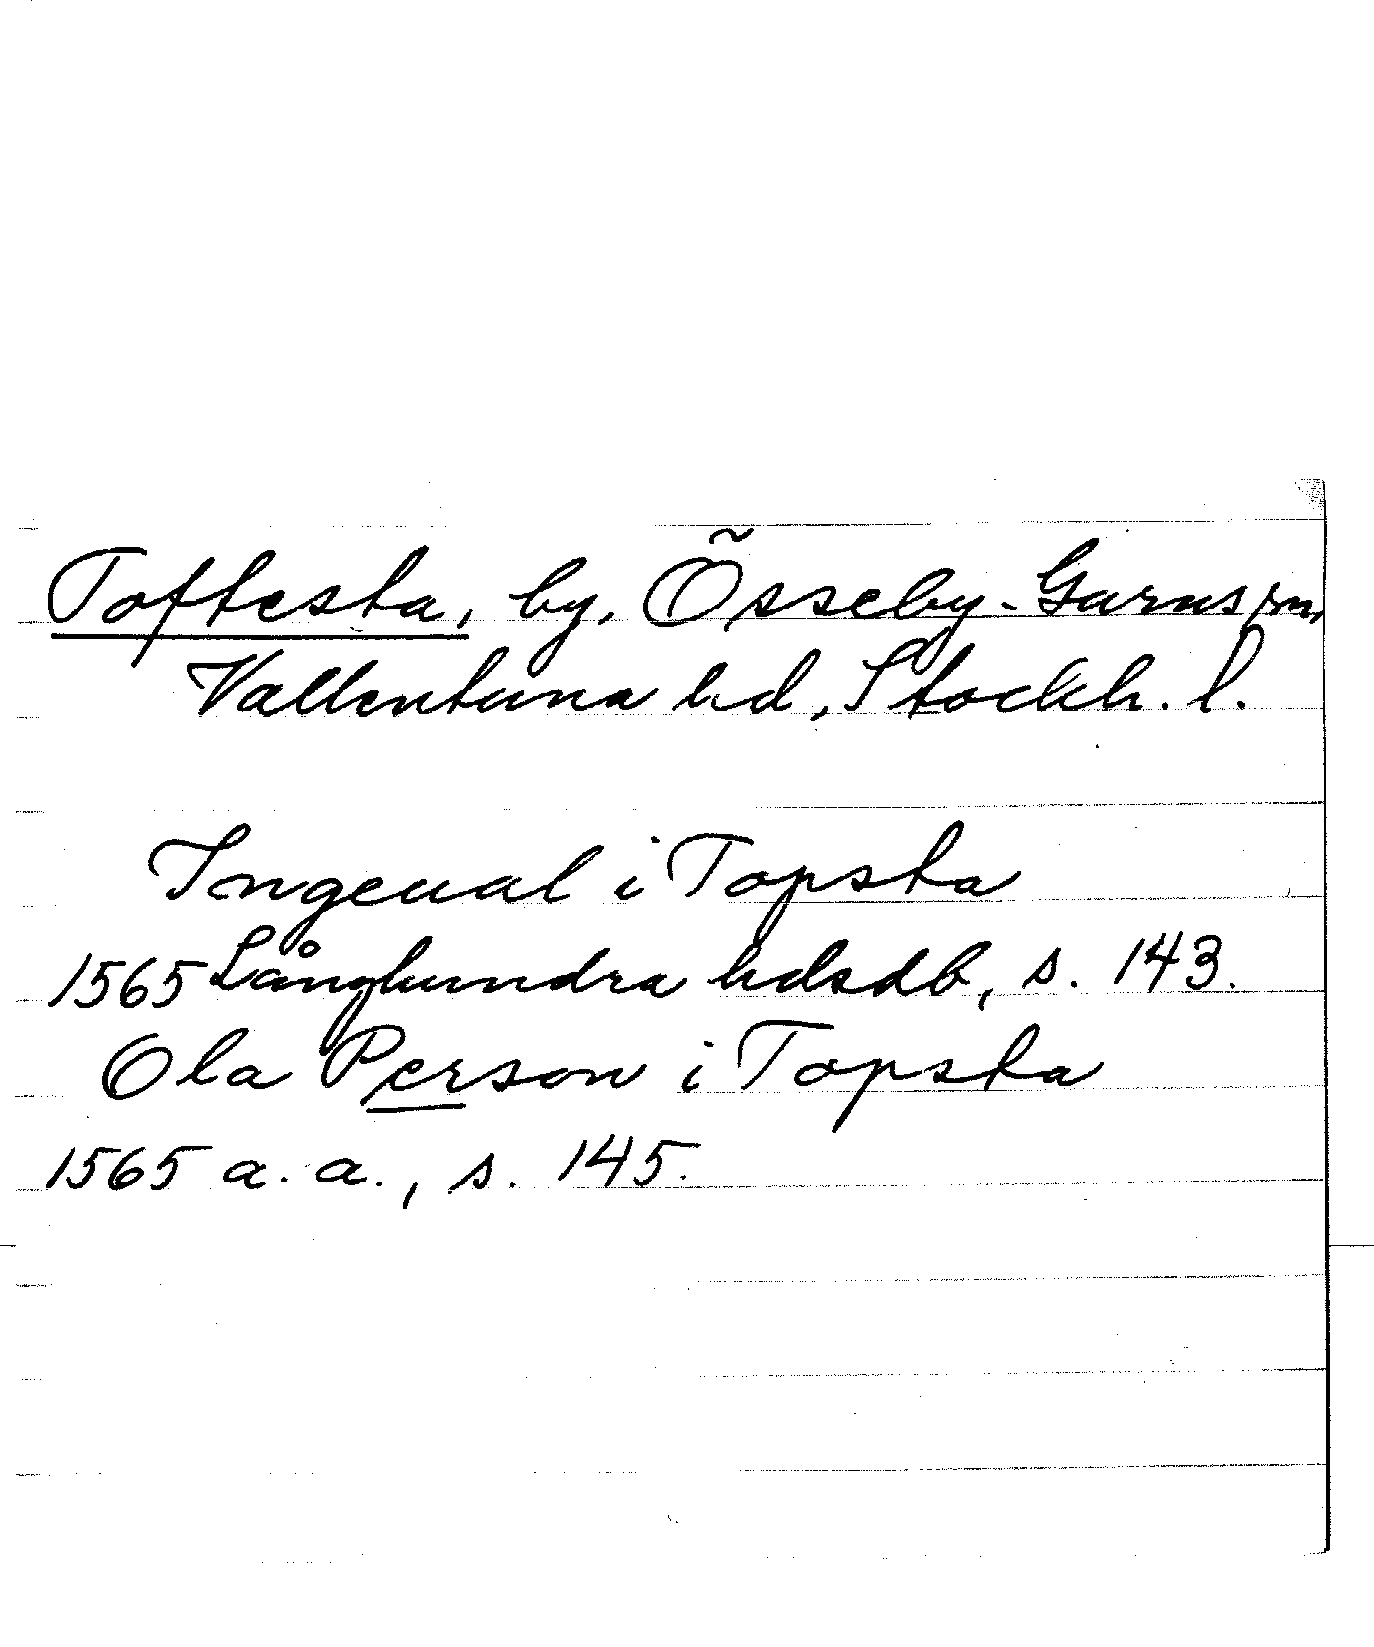 Toftesta, by, Össeby-Garns sn,
Vallentuna hd, Stockh. l.
Ingeual i Topsta
1565 Långhundra hdsdb, s. 143.
Ola Person i Topsta
1565 a. a., s. 145.